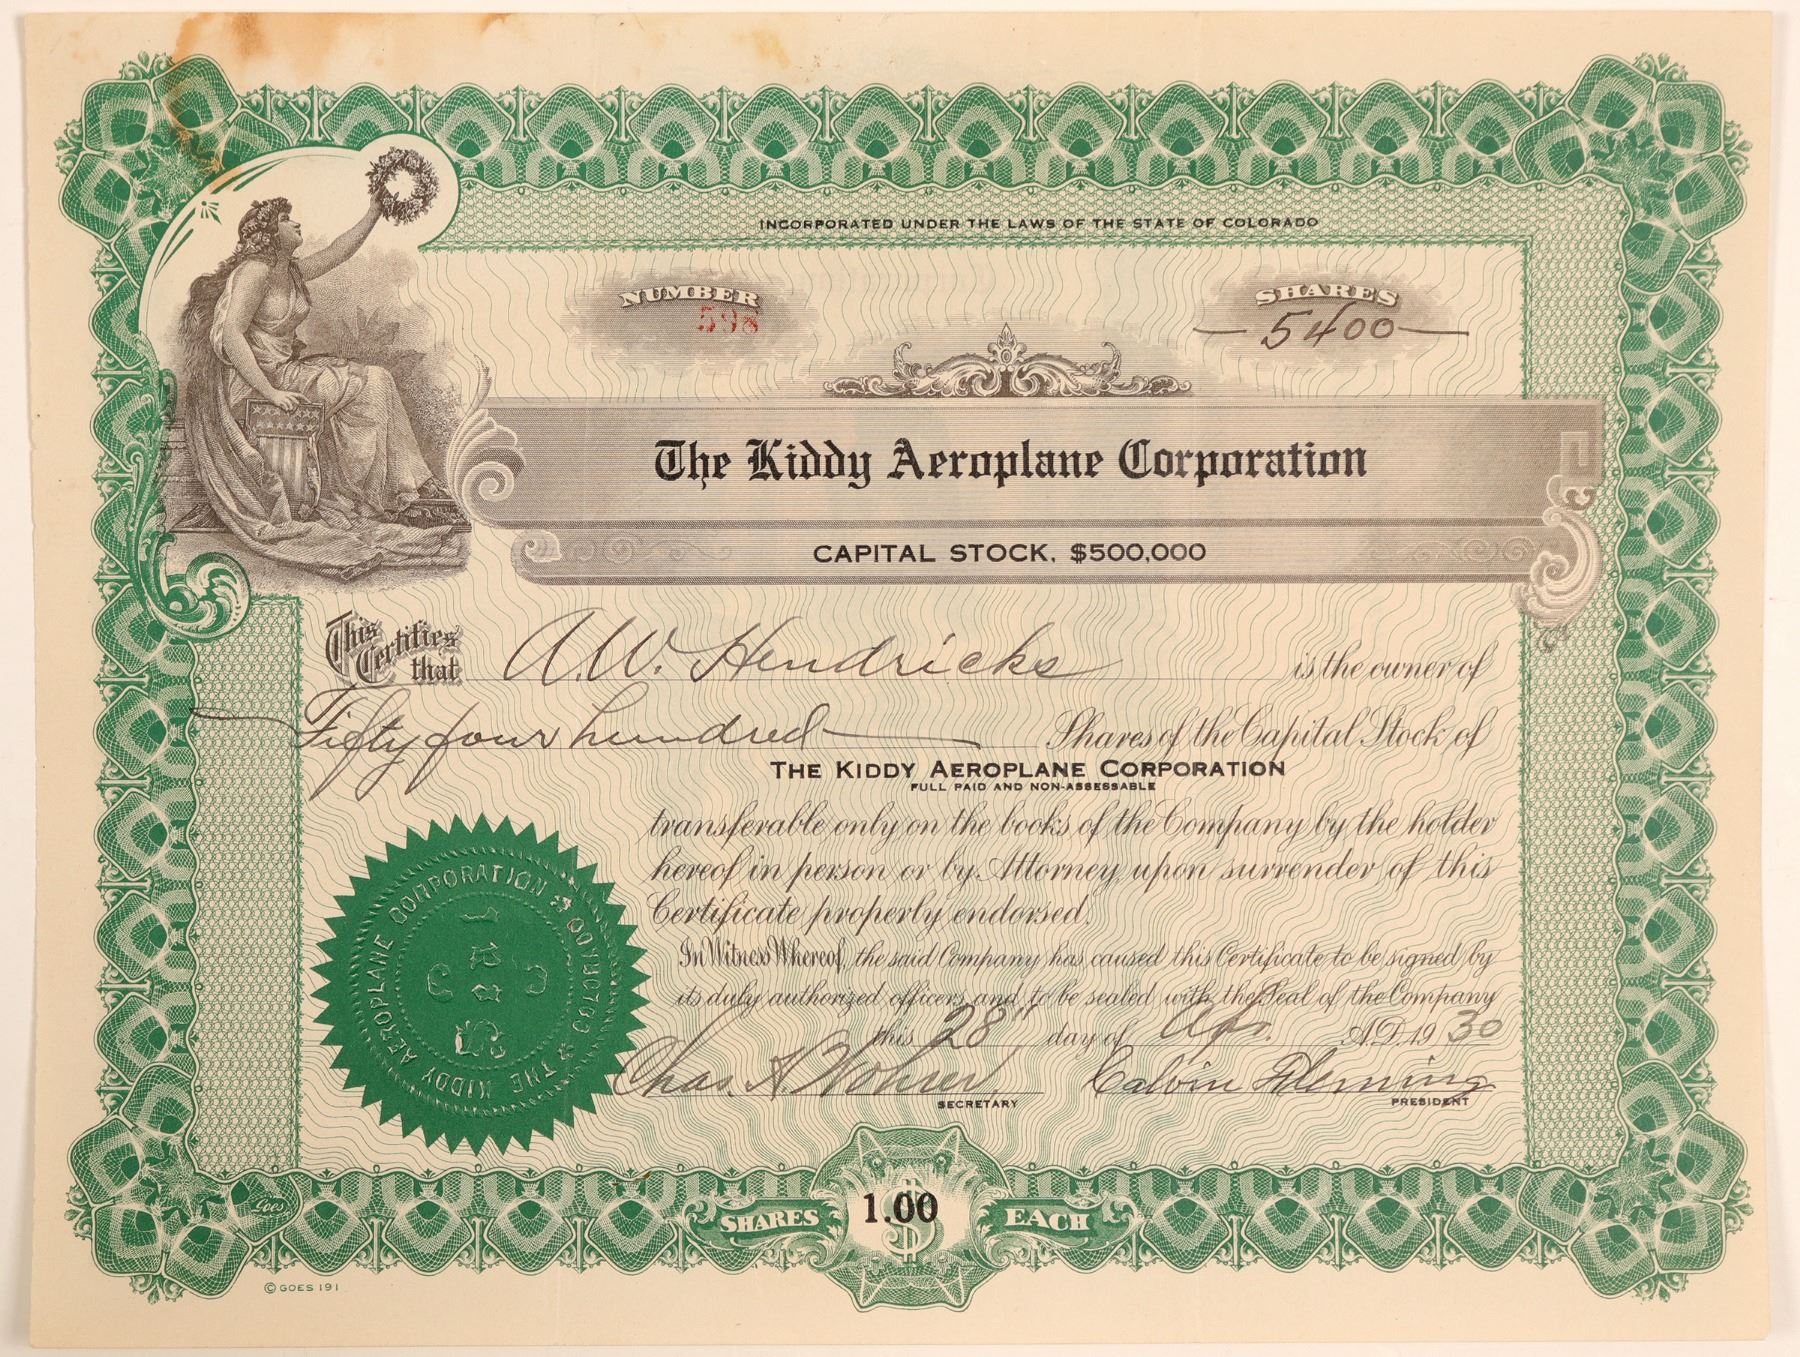 INCORPORATED UNDER THE LAWS OF THE STATE OF COLORADO
NUMBER
598
SHARES
5400
The Kiddy Aeroplane Corporation
CAPITAL STOCK, $500,000
This Certifies that A.W. Hendricks is the owner of
Fifty four hundred Shares of the Capital Stock of
THE KIDDY AEROPLANE CORPORATION
FULL PAID AND NON-ASSESSABLE
transferable only on the books of the Company by the holder
hereof in person or by Attorney upon surrender of this
Certificate properly endorsed.
In Witness Whereof, the said Company has caused this Certificate to be signed by
its duly authorized officers and to be sealed with the Seal of the Company
this 28" day of Apr. A.D. 19 30
Chas. A. Calvin Fleming
SECRETARY
PRESIDENT
THE KIDDY AEROPLANE CORPORATION COLORADO
SEAL
SHARES $ 1.00 EACH
Goes
© GOES 191